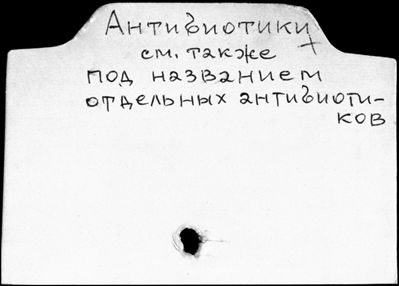 Антибиотики
см. также
под названием
отдельных антибиоти-
ков